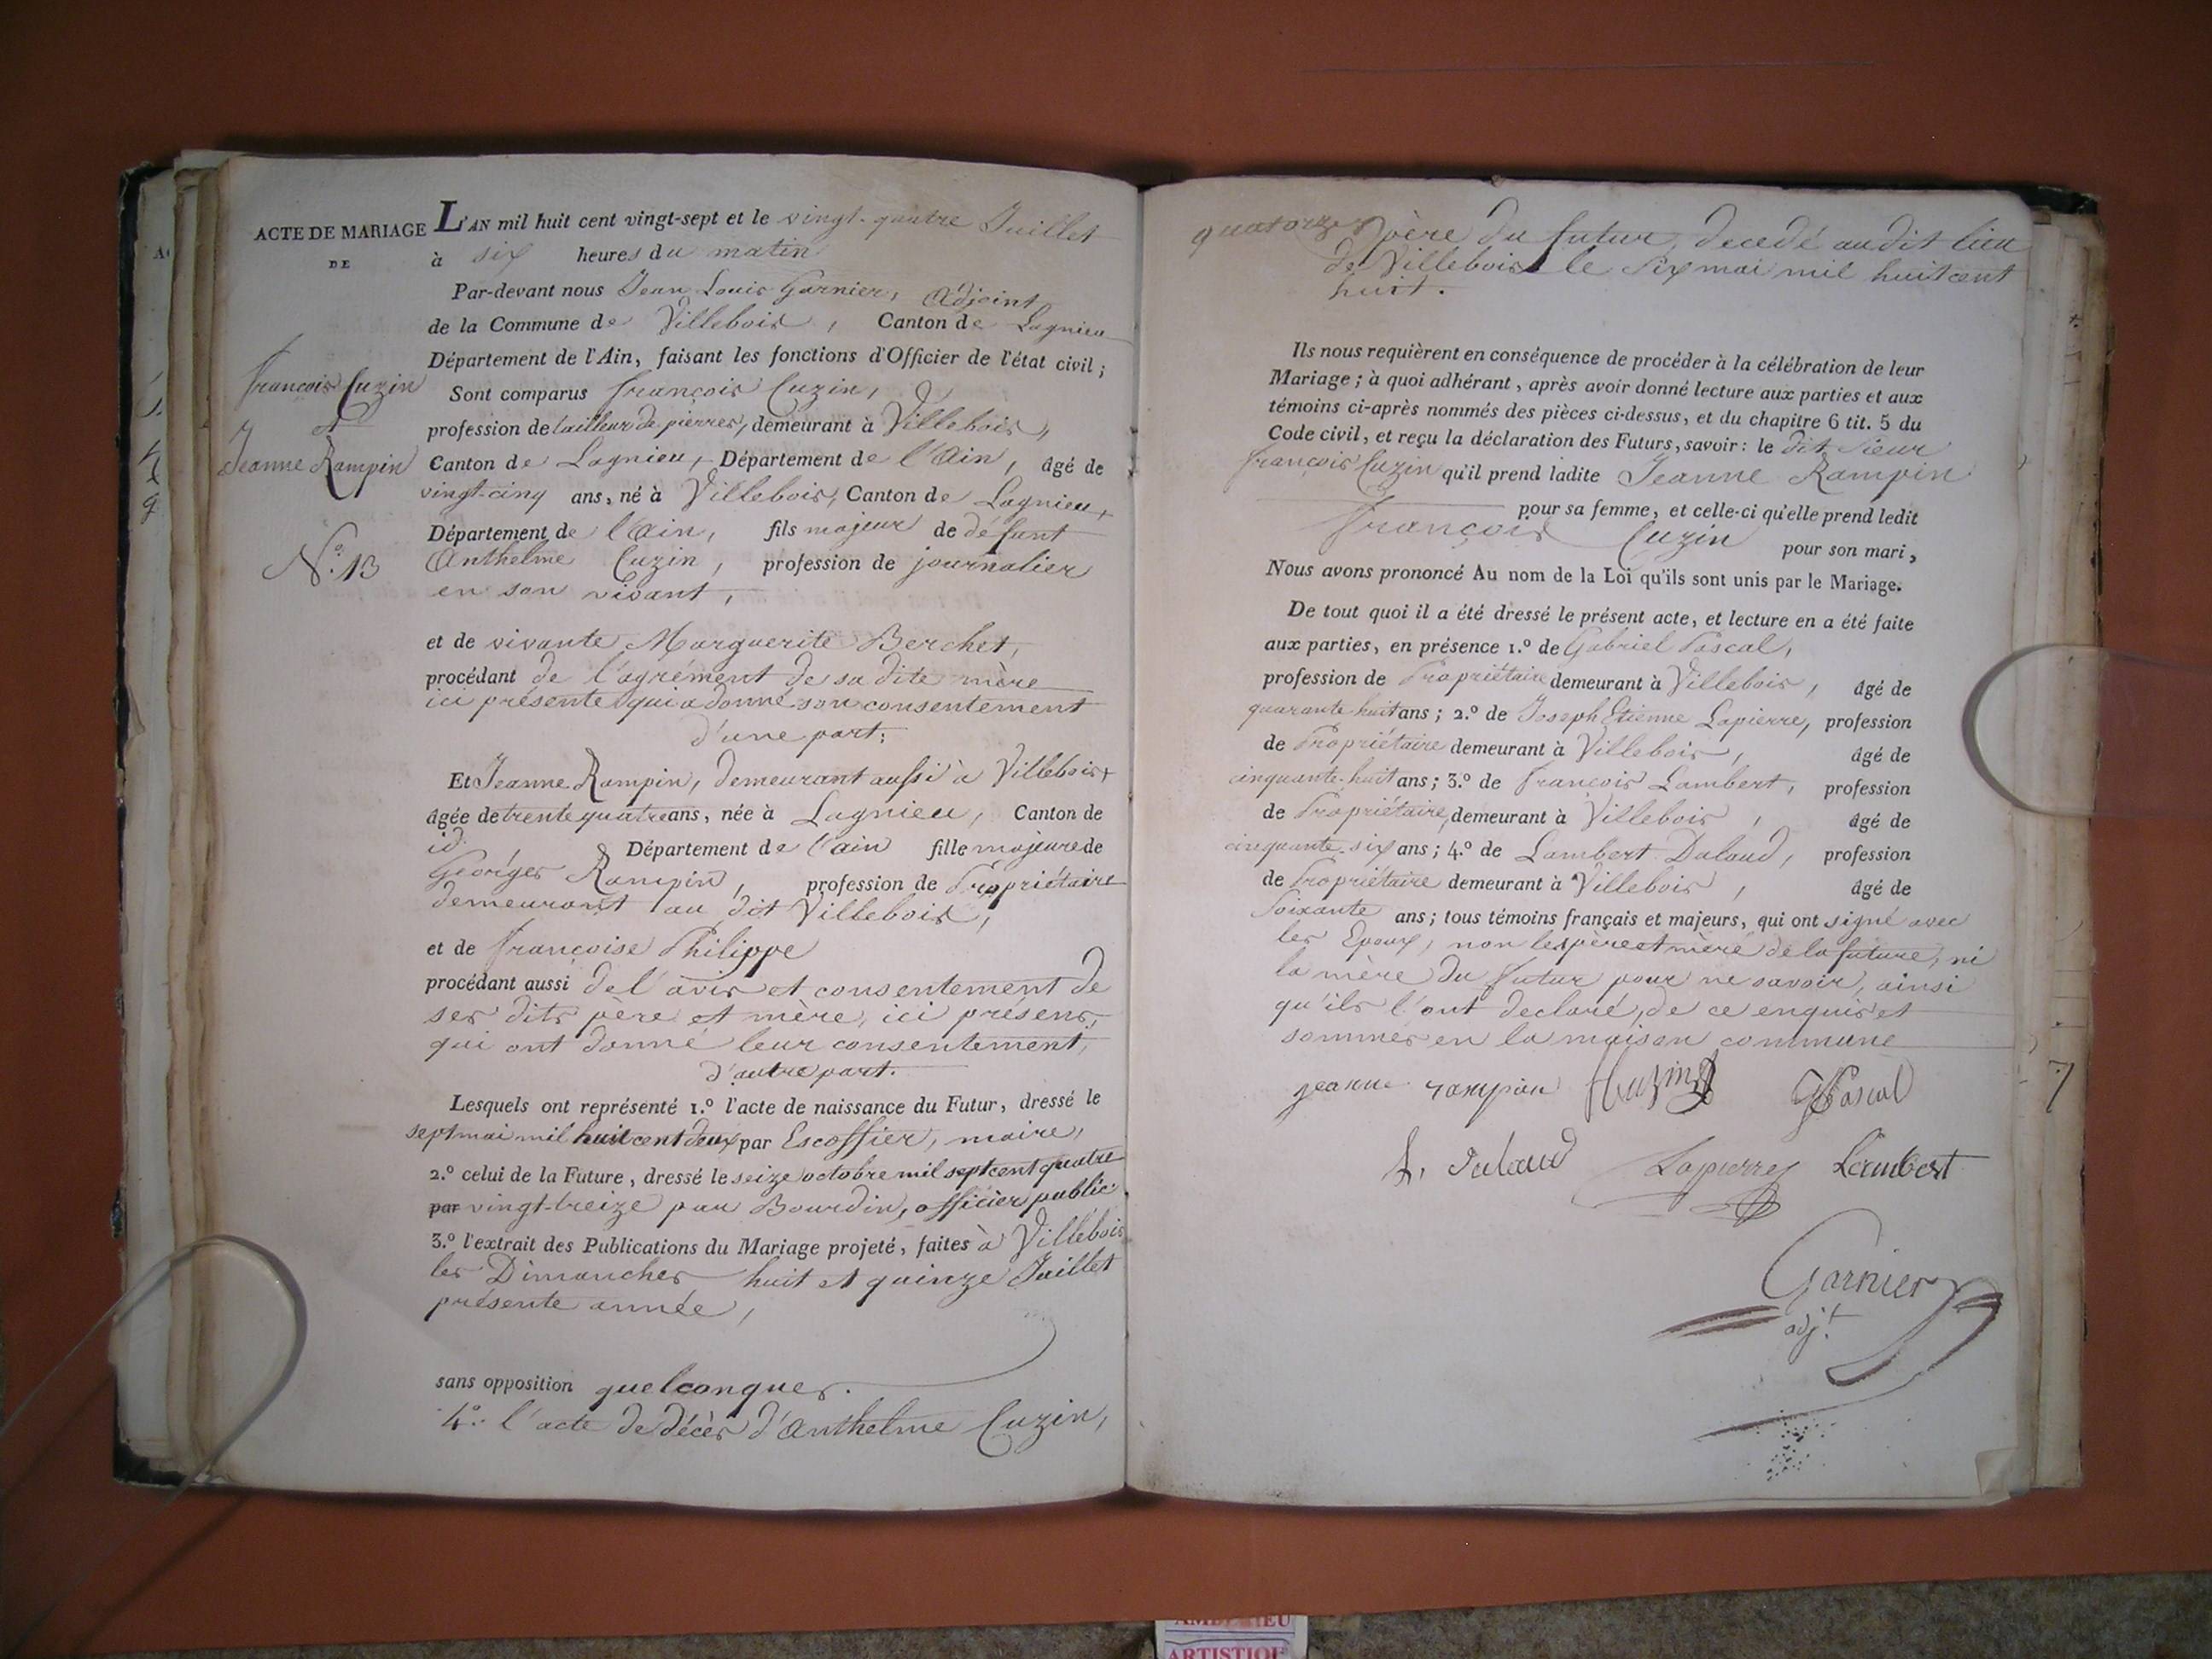 ACTE DE MARIAGE
DE
françois Cuzin
et
Jeanne Rampin
N.º 13
L'AN mil huit cent vingt-sept et le vingt-quatre Juillet
à six heures du matin
Par-devant nous Jean Louis Garnier, Adjoint
de la Commune de Villebois, Canton de Lagnieu
Département de l'Ain, faisant les fonctions d'Officier de l'état civil;
Sont comparus françois Cuzin,
profession de tailleur de pierres, demeurant à Villebois,
Canton de Lagnieu, Département de l'Ain, âgé de
vingt-cinq ans, né à Villebois, Canton de Lagnieu,
Département de l'Ain, fils majeur de défunt
Anthelme Cuzin, profession de journalier
en son vivant,
et de vivante Marguerite Berchet,
procédant de l'agrément de sa dite mère
ici présente qui a donné son consentement
d'une part;
Et Jeanne Rampin, demeurant aussi à Villebois
âgée de trente quatre ans, née à Lagnieu, Canton de
id. Département de l'ain fille majeure de
Georges Rampin, profession de Propriétaire
demeurant au dit Villebois,
et de françoise Philippe
procédant aussi de l'avis et consentement de
ses dits père et mère, ici présens,
qui ont donné leur consentement,
d'autre part.
Lesquels ont représenté 1.º l'acte de naissance du Futur, dressé le
sept mai mil huit cent deux par Escoffier, maire,
2.º celui de la Future, dressé le seize octobre mil sept cent quatre
par vingt-treize par Bourdin, officier public
3.º l'extrait des Publications du Mariage projeté, faites à Villebois
les Dimanches huit et quinze Juillet
présente année,
sans opposition quelconques.
4º. l'acte de décès d'Anthelme Cuzin,
quatorze
père du futur, decedé au dit lieu
de Villebois le six mai mil huit cent
huit.
Ils nous requièrent en conséquence de procéder à la célébration de leur
Mariage; à quoi adhérant, après avoir donné lecture aux parties et aux
témoins ci-après nommés des pièces ci-dessus, et du chapitre 6 tit. 5 du
Code civil, et reçu la déclaration des Futurs, savoir: le dit Sieur
françois Cuzin qu'il prend ladite Jeanne Rampin
pour sa femme, et celle-ci qu'elle prend ledit
François Cuzin pour son mari,
Nous avons prononcé Au nom de la Loi qu'ils sont unis par le Mariage.
De tout quoi il a été dressé le présent acte, et lecture en a été faite
aux parties, en présence 1.º de Gabriel Pascal,
profession de Propriétaire demeurant à Villebois, âgé de
quarante huit ans; 2.º de Joseph Etienne Lapierre, profession
de Propriétaire demeurant à Villebois, âgé de
cinquante-huit ans; 3.º de françois Lambert, profession
de Propriétaire, demeurant à Villebois, âgé de
cinquante-six ans; 4.º de Lambert Dalaud, profession
de Propriétaire demeurant à Villebois, âgé de
Soixante ans; tous témoins français et majeurs, qui ont signé avec
les Epoux, non les père et mère de la future, ni
la mère du futur pour ne savoir, ainsi
qu'ils l'ont declaré, de ce enquis et
sommés en la maison commune
jeanne rampin fCuzin GPascal
L. Dalaud Lapierre Lambert
Garnier
adj.t
ARTISTIQUE